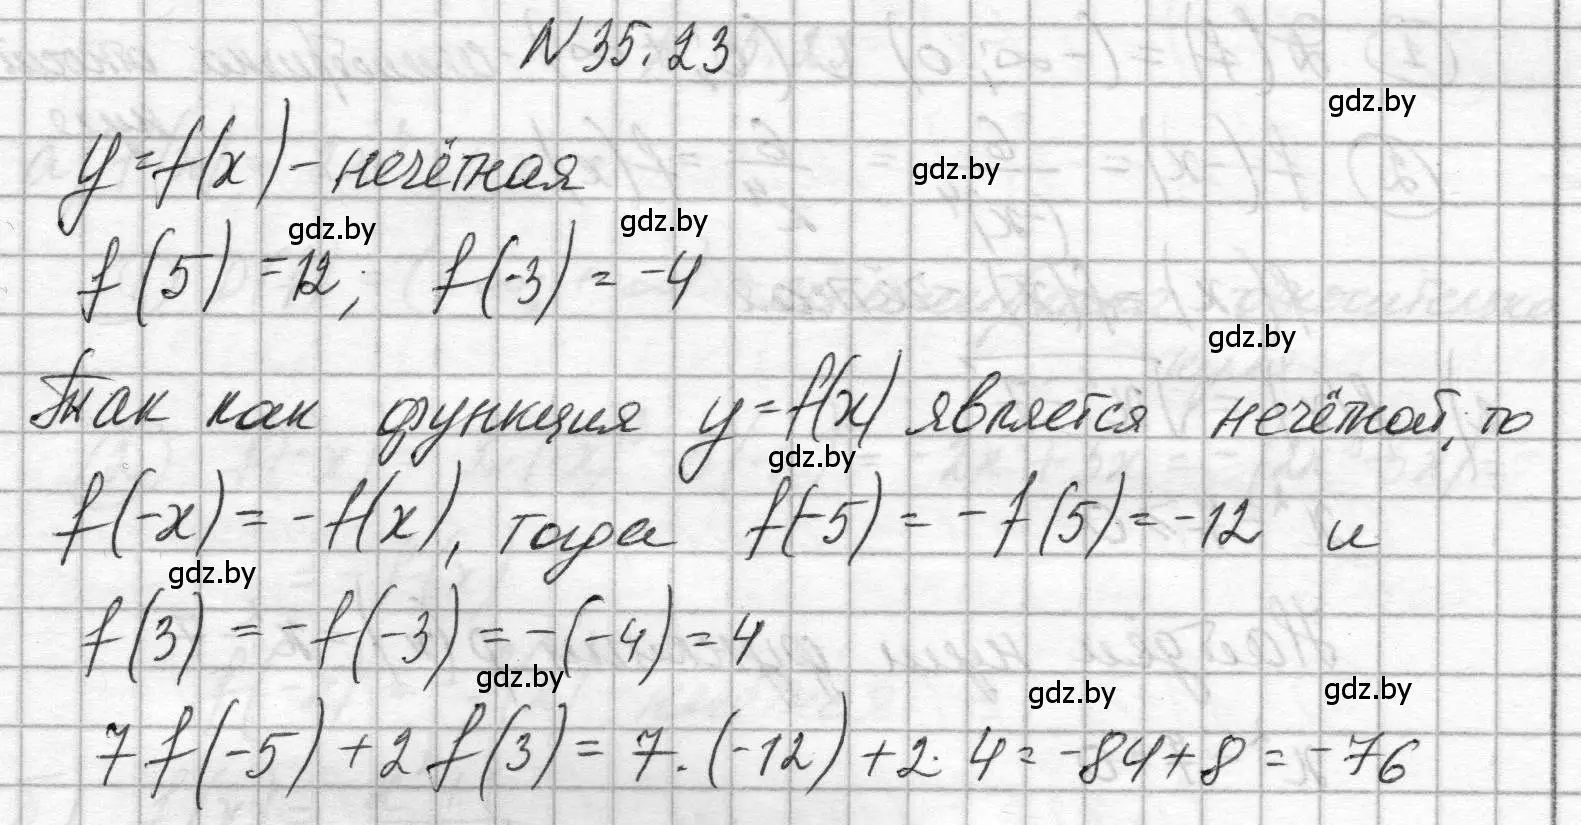 N 35.23
gdz.by
y=f(x) - нечётная
gdz.by
gdz.by
gdz.by
f(5) = 12; f(-3) = -4
gdz.by
Так как функция y=f(x) является нечётной, то
gdz.by
f(-x) = -f(x), тогда f(-5) = -f(5) = -12 и
gdz.by
f(3) = -f(-3) = -(-4) = 4
gdz.by
gdz.by
gdz.by
7f(-5) + 2f(3) = 7·(-12) + 2·4 = -84+8 = -76